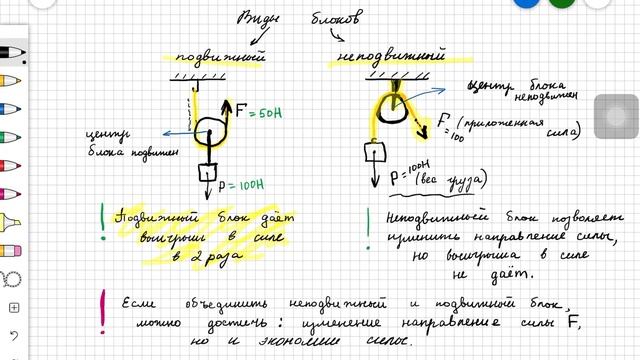 Виды блоков
подвижный
неподвижный
F = 50Н
центр
блока подвижен
P = 100Н
центр блока
неподвижен
F (приложенная
=100 сила)
P=100Н (вес груза)
! Подвижный блок даёт
выигрыш в силе
в 2 раза
! Неподвижный блок позволяет
изменить направление силы,
но выигрыша в силе
не даёт.
! Если объединить неподвижный и подвижный блок,
можно достичь: изменение направление силы F,
но и экономию силы.